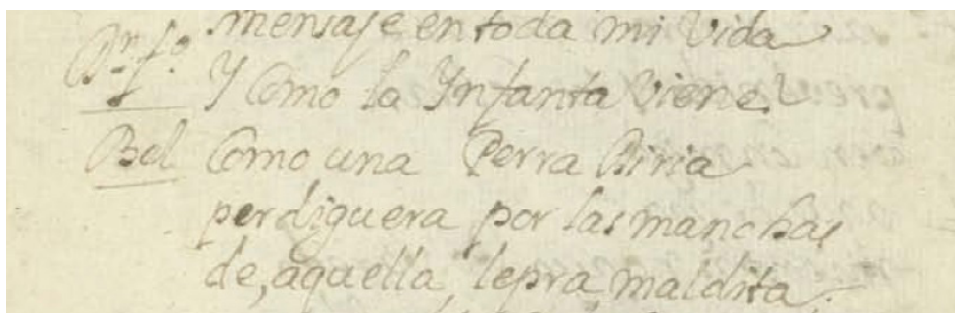 mensaje en toda mi vida
Dn. fo. Y Como la Ynfanta viene
Bel Como una Perra
perdiguera por las manchas
de, aquella, lepra maldita.